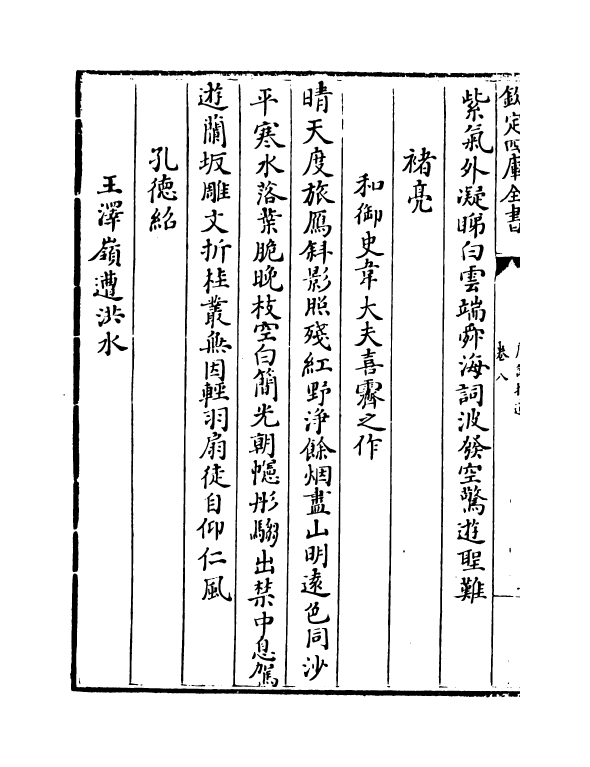 欽定四庫全書
卷八
紫氣外凝睇白雲端舜海詞波發空驚遊聖難
褚亮
和御史韋大夫喜霽之作
晴天度旅鴈斜影照殘紅野淨餘烟盡山明遠色同沙
平寒水落葉脆晚枝空白簡光朝幰彤騶出禁中息駕
遊蘭坂雕文折桂叢無因輕羽扇徒自仰仁風
孔徳紹
王澤嶺遭洪水